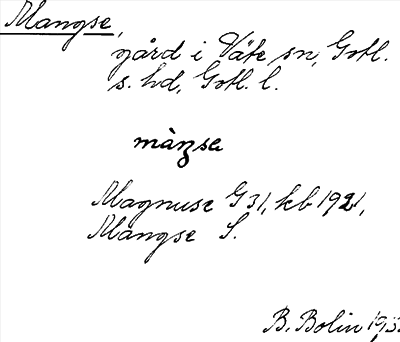 Mangse,
gård i Väte sn, Gotl.
s. hd, Gotl. l.
màŋsa
Magnuse G 31, kb 1921,
Mangse S.
B. Bolin